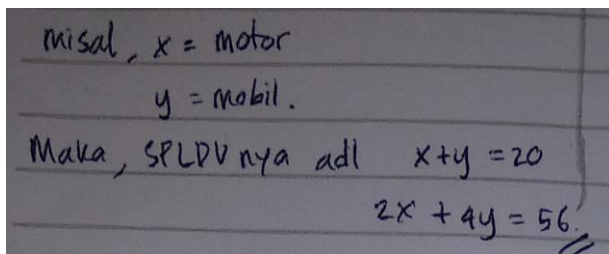 misal, x = motor
y = mobil.
Maka, SPLDV nya adl x+y = 20
2x + 4y = 56.